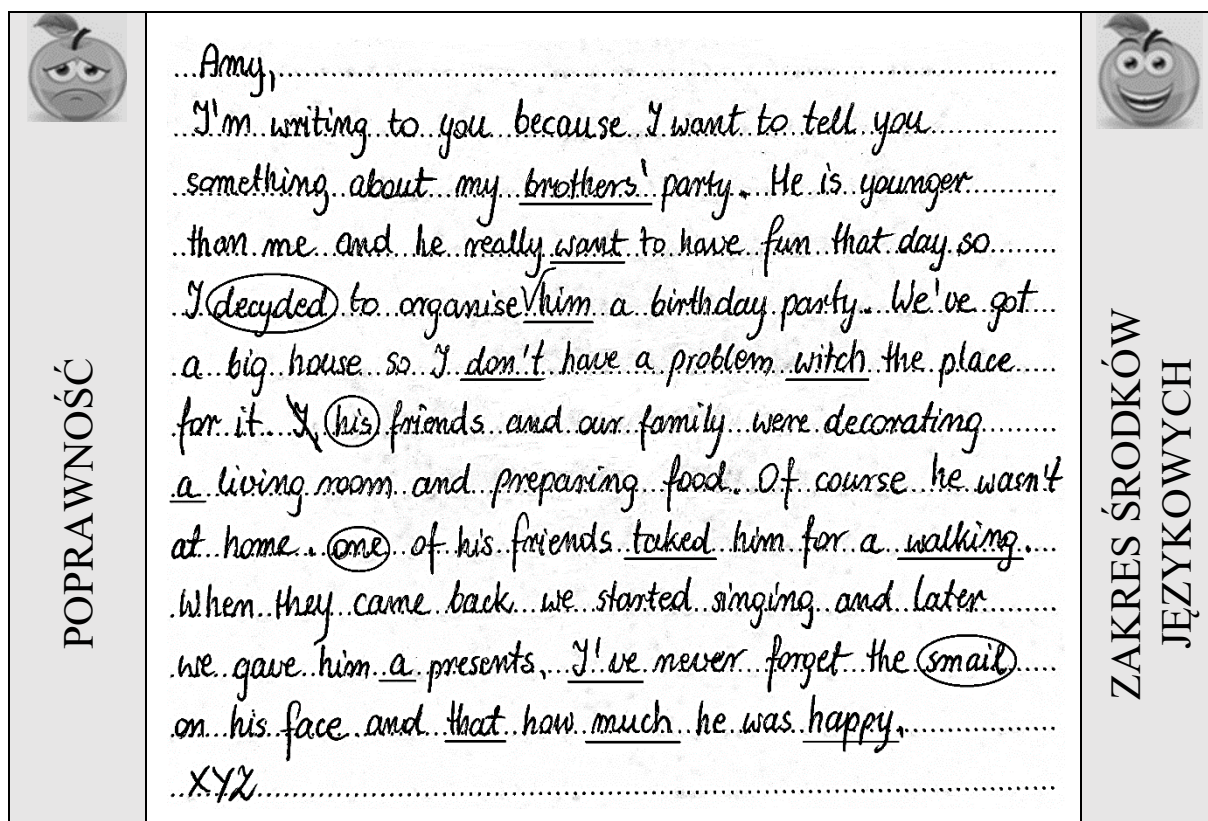 POPRAWNOŚĆ
Amy,
I'm writing to you because I want to tell you
something about my brothers' party. He is younger
than me and he really want to have fun that day so
I decyded to organise him a birthday party. We've got
a big house so I don't have a problem witch the place
for it. I, his friends and our family were decorating
a living room and preparing food. Of course he wasn't
at home. one of his friends taked him for a walking.
When they came back we started singing and later
we gave him a presents. I've never forget the smail
on his face and that how much he was happy.
XYZ
ZAKRES ŚRODKÓW
JĘZYKOWYCH